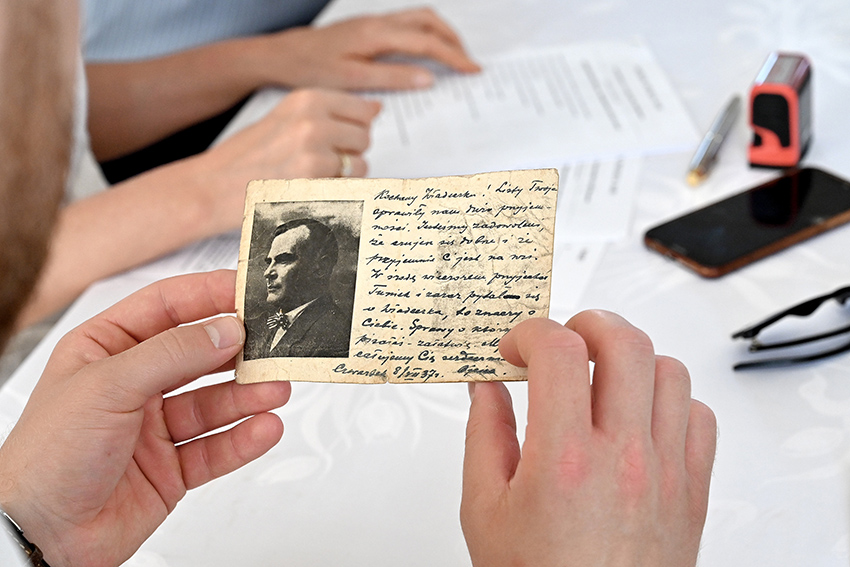 Kochany Wacusku! Listy Twoje
sprawiły nam dużo przyjem-
ności. Jesteśmy zadowoleni,
że czujesz się dobrze i że
przyjemnie Ci jest na wsi.
W środę wieczorem przyjechał
Tumek i zaraz pytał się
o Wacuska, to znaczy o
Ciebie. Sprawy o której
piszesz - załatwię.
całujemy Cię serdecznie
Czwartek 8/VII 37 r.